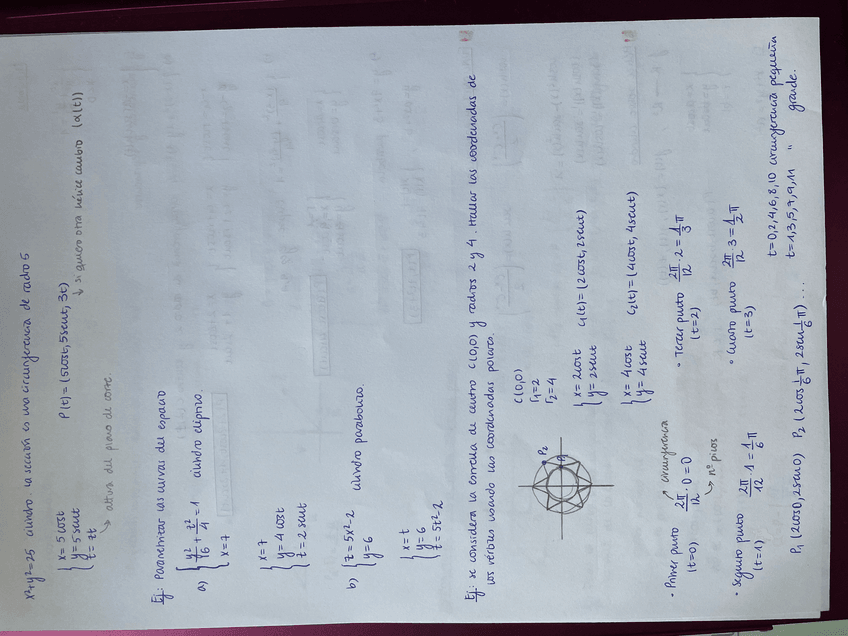 x²+y²=25 cilindro. la sección es una circunferencia de radio 5
{ x = 5 cost
y = 5 sent
z = zt
P(t) = (5cost, 5sent, 3t)
↳ si quiero otra hélice cambio (a(t))
↳ altura del plano de corte.
Ej: Parametrizar las curvas del espacio
a) { y²/16 + z²/4 = 1 cilindro elíptico.
x = 7
{ x = 7
y = 4 cost
z = 2 sent
b) { z = 5x²-2 cilindro parabólico.
y = 6
{ x = t
y = 6
z = 5t²-2
Ej: se considera la estrella de centro C(0,0) y radios 2 y 4. Hallar las coordenadas de
los vértices usando las coordenadas polares.
P2
P1
C(0,0)
r₁=2
r₂=4
{ x = 2cost
y = 2sent
C₁(t) = (2cost, 2sent)
{ x = 4cost
y = 4sent
C₂(t) = (4cost, 4sent)
• Primer punto 2π/12 · 0 = 0
(t=0)
↗ circunferencia
↳ nº picos
• Tercer punto 2π/12 · 2 = 1/3 π
(t=2)
• Segundo punto 2π/12 · 1 = 1/6 π
(t=1)
• Cuarto punto 2π/12 · 3 = 1/2 π
(t=3)
P₁ (2cos0, 2sen0) P₂ (2cos 1/6 π, 2sen 1/6 π) ...
t=0,2,4,6,8,10 circunferencia pequeña
t=1,3,5,7,9,11 " grande.